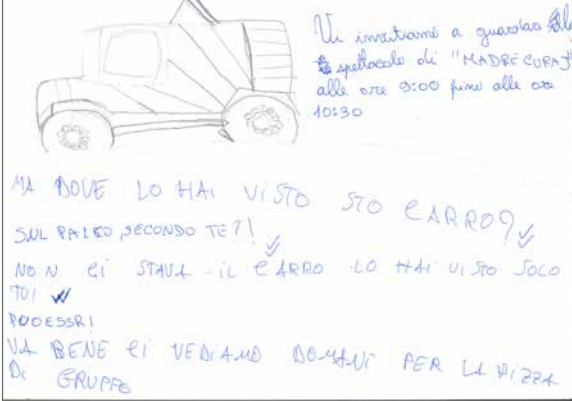 Vi invitiamo a guardare lo
spettacolo di "MADRE CURAJ"
alle ore 9:00 fino alle ore
10:30
MA DOVE LO HAI VISTO STO CARRO?
SUL PALCO, SECONDO TE?!
NON CI STAVA IL CARRO LO HAI VISTO SOLO
TU!
VA BENE CI VEDIAMO DOMANI PER LA PIZZA
DI GRUPPO